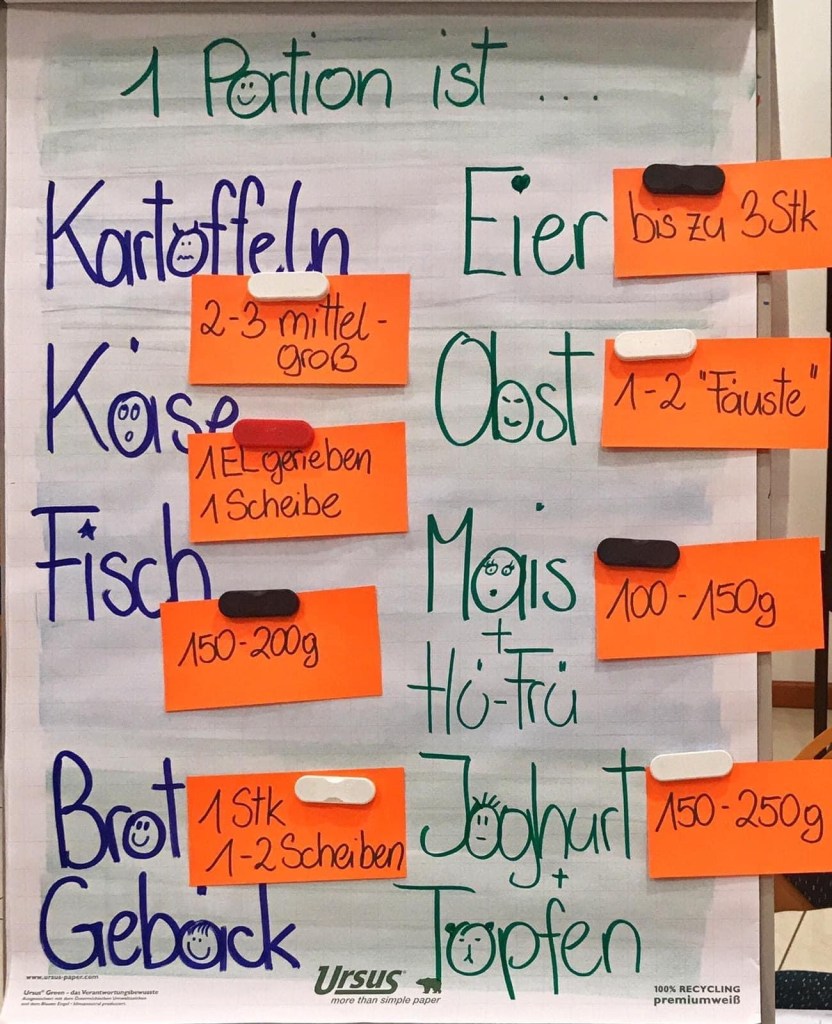 1 Portion ist ...
Kartoffeln
2-3 mittel-
groß
Käse
1 EL gerieben
1 Scheibe
Fisch
150-200g
Brot
Gebäck
1 Stk
1-2 Scheiben
Eier
bis zu 3 Stk
Obst
1-2 "Fäuste"
Mais
+
Hü-Frü
100-150g
Joghurt
+
Topfen
150-250g
www.ursus-paper.com
Ursus® Green - das Verantwortungsbewusste
Ursus®
more than simple paper
100% RECYCLING
premiumweiß